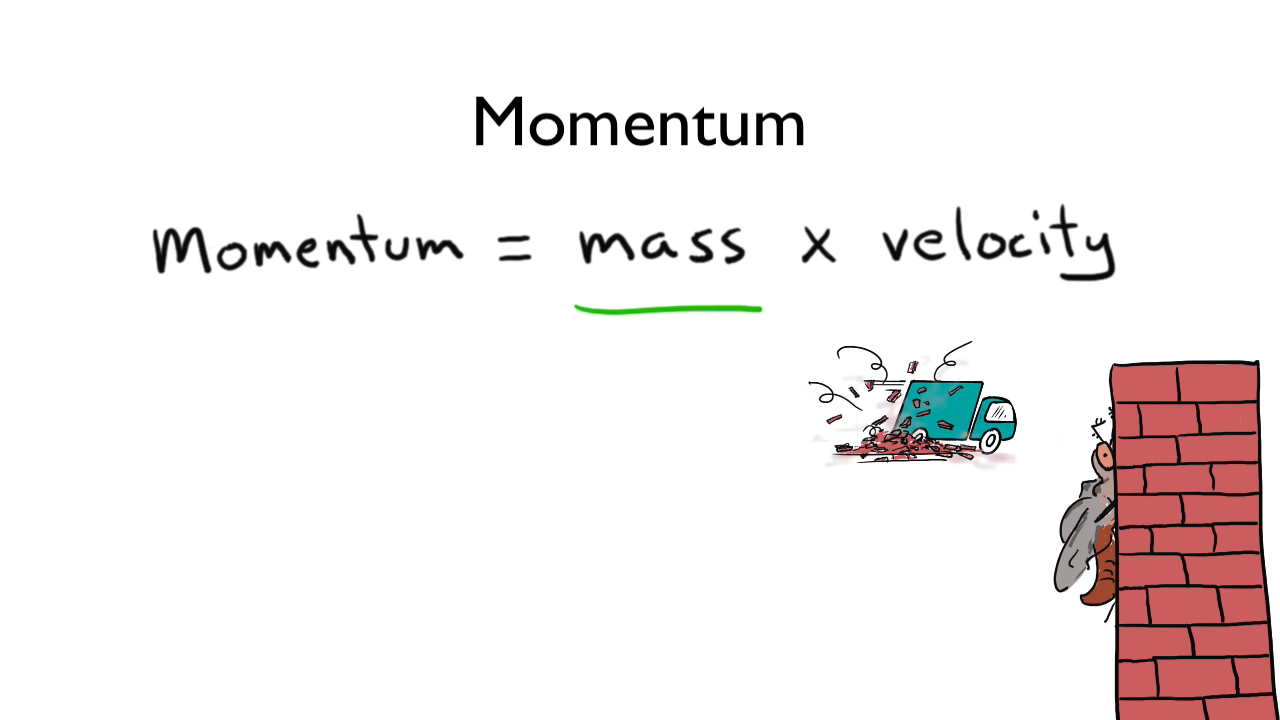 Momentum
Momentum = mass x velocity